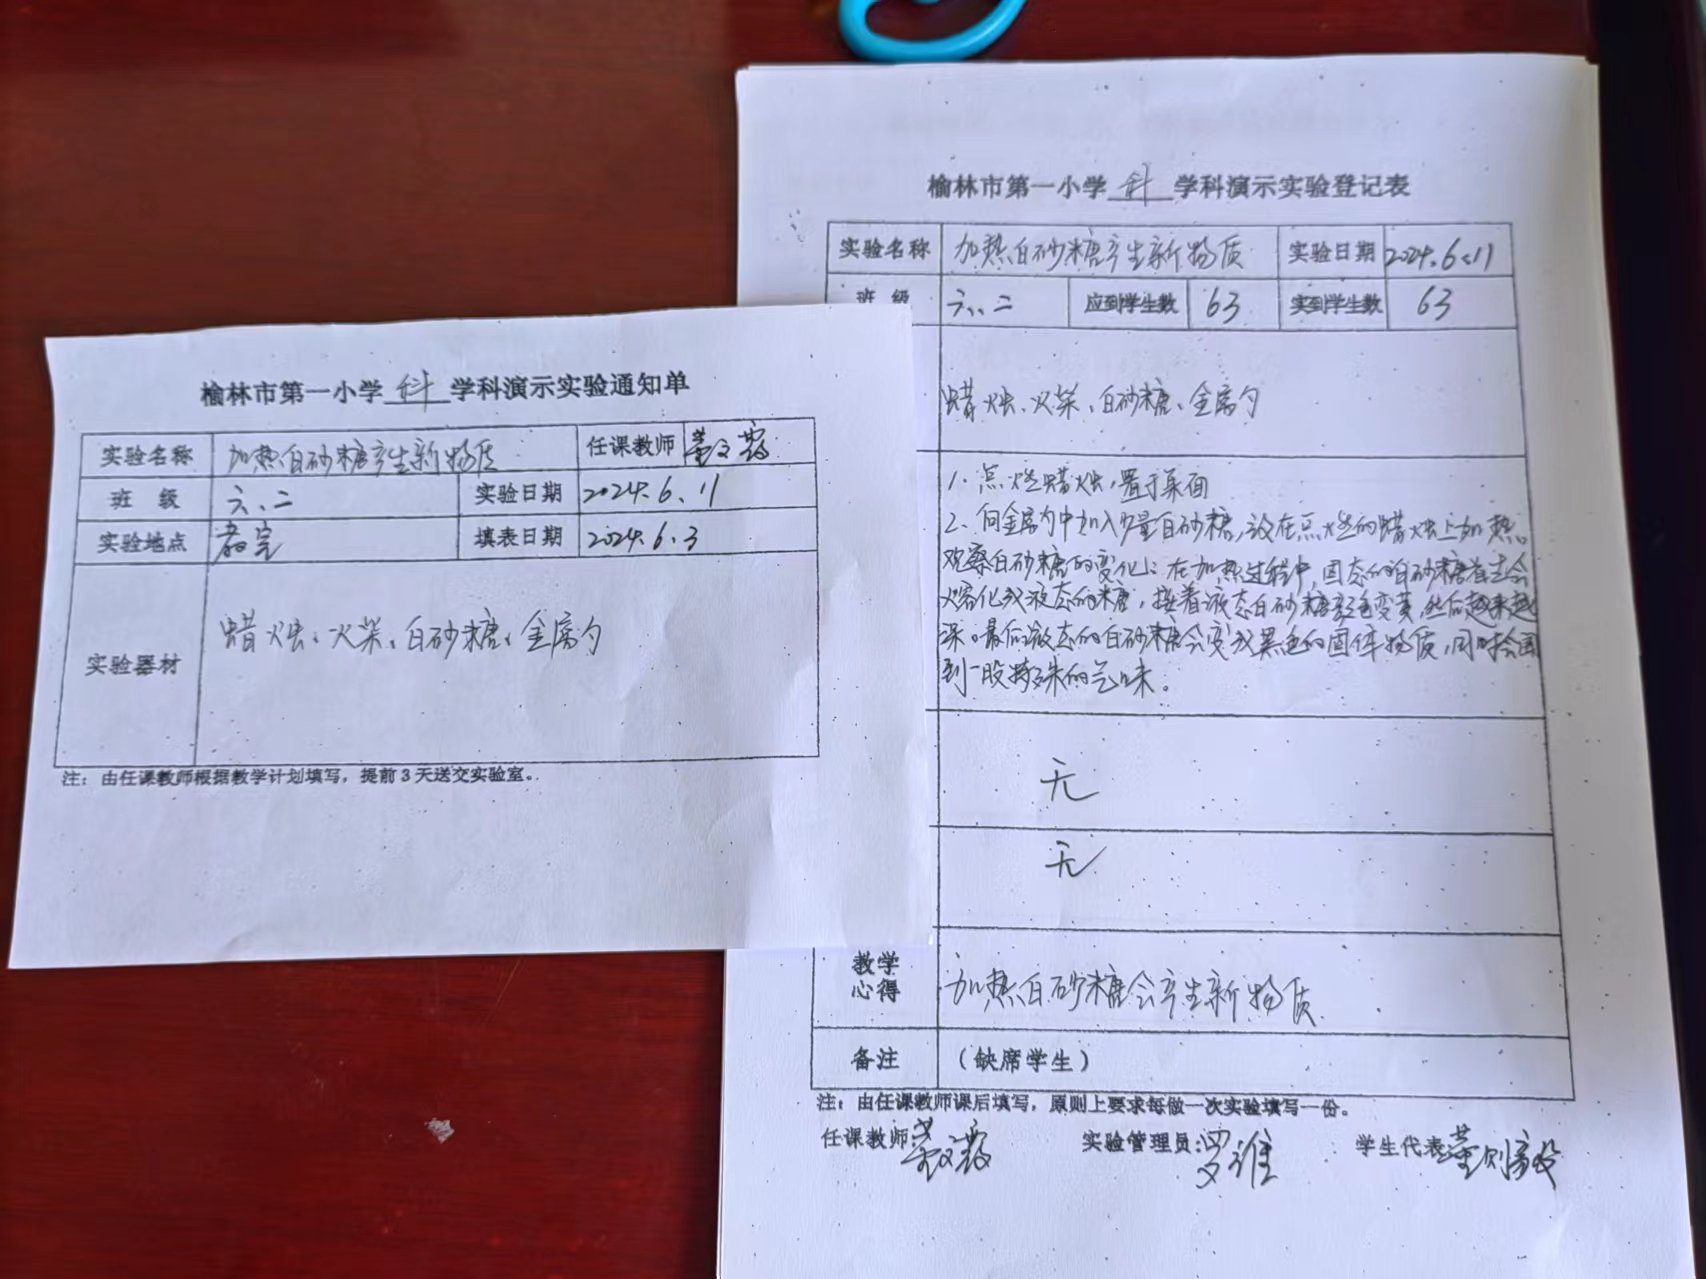 榆林市第一小学 科 学科演示实验通知单
实验名称 加热白砂糖产生新物质 任课教师
班 级 六、二 实验日期 2024.6.11
实验地点 教室 填表日期 2024.6.3
实验器材 蜡烛、火柴、白砂糖、金属勺
注：由任课教师根据教学计划填写，提前3天送交实验室。
榆林市第一小学 科 学科演示实验登记表
实验名称 加热白砂糖产生新物质 实验日期 2024.6.11
班 级 六、二 应到学生数 63 实到学生数 63
蜡烛、火柴、白砂糖、金属勺
1. 点燃蜡烛，置于桌面
2、向金属勺中加入少量白砂糖，放在点燃的蜡烛上加热。
观察白砂糖的变化：在加热过程中，固态的白砂糖首先会
熔化成液态的糖，接着液态白砂糖颜色变黄，然后越来越
深。最后液态的白砂糖会变成黑色的固体物质，同时会闻
到一股特殊的气味。
无
无
教学心得 加热白砂糖会产生新物质
备注 （缺席学生）
注：由任课教师课后填写，原则上要求每做一次实验填写一份。
任课教师: 实验管理员: 罗维 学生代表